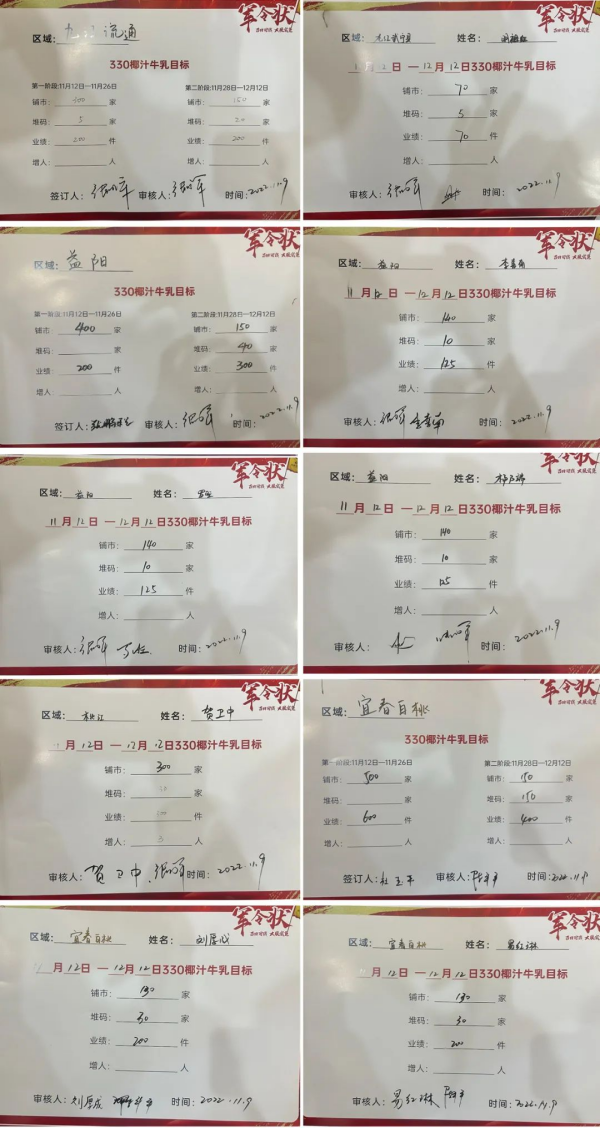 军令状
区域： 九江流通
330椰汁牛乳目标
第一阶段:11月12日—11月26日 第二阶段:11月28日—12月12日
铺市： 300 家 铺市： 150 家
堆码： 5 家 堆码： 20 家
业绩： 200 件 业绩： 200 件
增人： 人 增人： 人
签订人： 审核人： 时间：2022.11.9
军令状
区域： 九江武宁县 姓名：
11月12日 —12月12日330椰汁牛乳目标
铺市： 70 家
堆码： 5 家
业绩： 70 件
增人： 人
审核人： 时间： 2022.11.9
军令状
区域： 益阳
330椰汁牛乳目标
第一阶段:11月12日—11月26日 第二阶段:11月28日—12月12日
铺市： 400 家 铺市： 150 家
堆码： 家 堆码： 40 家
业绩： 200 件 业绩： 300 件
增人： 人 增人： 人
签订人： 审核人： 时间： 2022.11.9
军令状
区域： 益阳 姓名：
11月12日 —12月12日330椰汁牛乳目标
铺市： 140 家
堆码： 10 家
业绩： 125 件
增人： 人
审核人： 时间： 2022.11.9
军令状
区域： 益阳 姓名：
11月12日 —12月12日330椰汁牛乳目标
铺市： 140 家
堆码： 10 家
业绩： 125 件
增人： 人
审核人： 时间：2022.11.9
军令状
区域： 益阳 姓名：
11月12日 —12月12日330椰汁牛乳目标
铺市： 140 家
堆码： 10 家
业绩： 125 件
增人： 人
审核人： 时间：2022.11.9
军令状
区域： 桃江 姓名： 贺卫中
月12日 —12月12日330椰汁牛乳目标
铺市： 300 家
堆码： 家
业绩： 件
增人： 人
审核人：贺卫中 时间：2022.11.9
军令状
区域： 宜春百桃
330椰汁牛乳目标
第一阶段:11月12日—11月26日 第二阶段:11月28日—12月12日
铺市： 500 家 铺市： 150 家
堆码： 家 堆码： 150 家
业绩： 600 件 业绩： 400 件
增人： 人 增人： 人
签订人： 审核人： 时间：2022.11.9
军令状
区域： 宜春百桃 姓名： 刘厚成
月12日 —12月12日330椰汁牛乳目标
铺市： 130 家
堆码： 30 家
业绩： 200 件
增人： 人
审核人：刘厚成 时间：2022.11.9
军令状
区域： 宜春百桃 姓名： 易红琳
月12日 —12月12日330椰汁牛乳目标
铺市： 130 家
堆码： 30 家
业绩： 200 件
增人： 人
审核人：易红琳 时间：2022.11.9